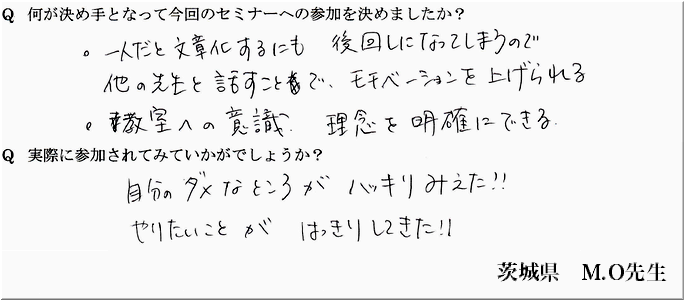 Q 何が決め手となって今回のセミナーへの参加を決めましたか？
・一人だと文章化するにも 後回しになってしまうので
他の先生と話すことで、モチベーションを上げられる
・教室への意識、理念を明確にできる
Q 実際に参加されてみていかがでしょうか？
自分のダメなところが ハッキリみえた!!
やりたいことが はっきりしてきた!!
茨城県 M.O先生